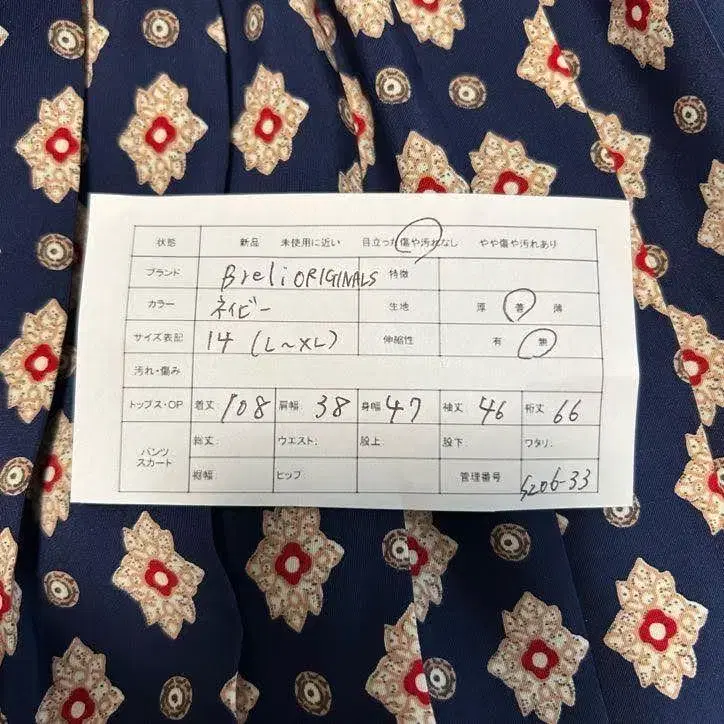 状態 新品 未使用に近い 目立った傷や汚れなし やや傷や汚れあり
ブランド Breli ORIGINALS 特徴
カラー ネイビー 生地 厚 普 薄
サイズ表記 14 (L～XL) 伸縮性 有 無
汚れ・傷み
トップス・OP 着丈: 108 肩幅: 38 身幅: 47 袖丈: 46 裄丈: 66
パンツ スカート 総丈: ウエスト: 股上: 股下: ワタリ:
裾幅: ヒップ: 管理番号 S206-33